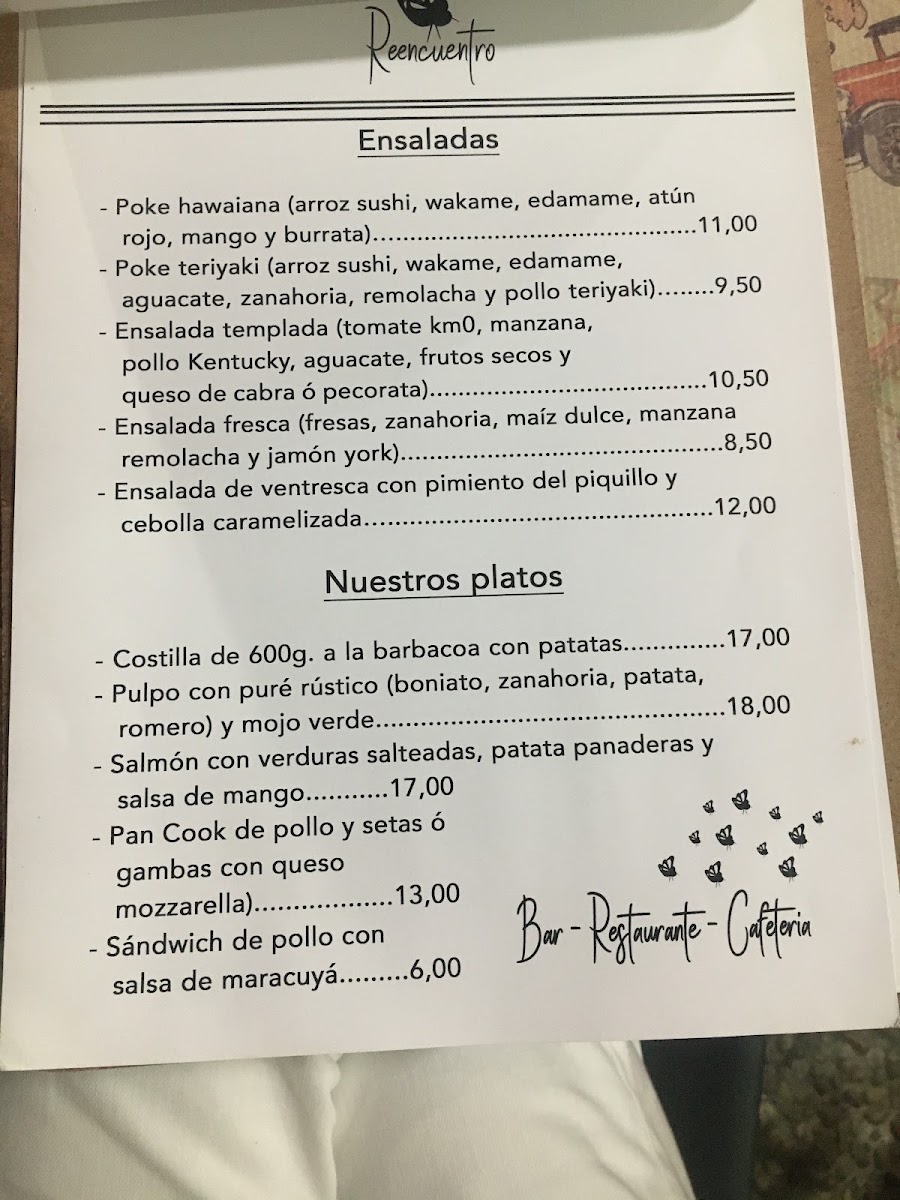 Reencuentro
Ensaladas
- Poke hawaiana (arroz sushi, wakame, edamame, atún
rojo, mango y burrata)...........................................11,00
- Poke teriyaki (arroz sushi, wakame, edamame,
aguacate, zanahoria, remolacha y pollo teriyaki)........9,50
- Ensalada templada (tomate km0, manzana,
pollo Kentucky, aguacate, frutos secos y
queso de cabra ó pecorata).....................................10,50
- Ensalada fresca (fresas, zanahoria, maíz dulce, manzana
remolacha y jamón york)...........................................8,50
- Ensalada de ventresca con pimiento del piquillo y
cebolla caramelizada...............................................12,00
Nuestros platos
- Costilla de 600g. a la barbacoa con patatas..............17,00
- Pulpo con puré rústico (boniato, zanahoria, patata,
romero) y mojo verde...............................................18,00
- Salmón con verduras salteadas, patata panaderas y
salsa de mango...........17,00
- Pan Cook de pollo y setas ó
gambas con queso
mozzarella)...................13,00
- Sándwich de pollo con
salsa de maracuyá.........6,00
Bar - Restaurante - Cafeteria